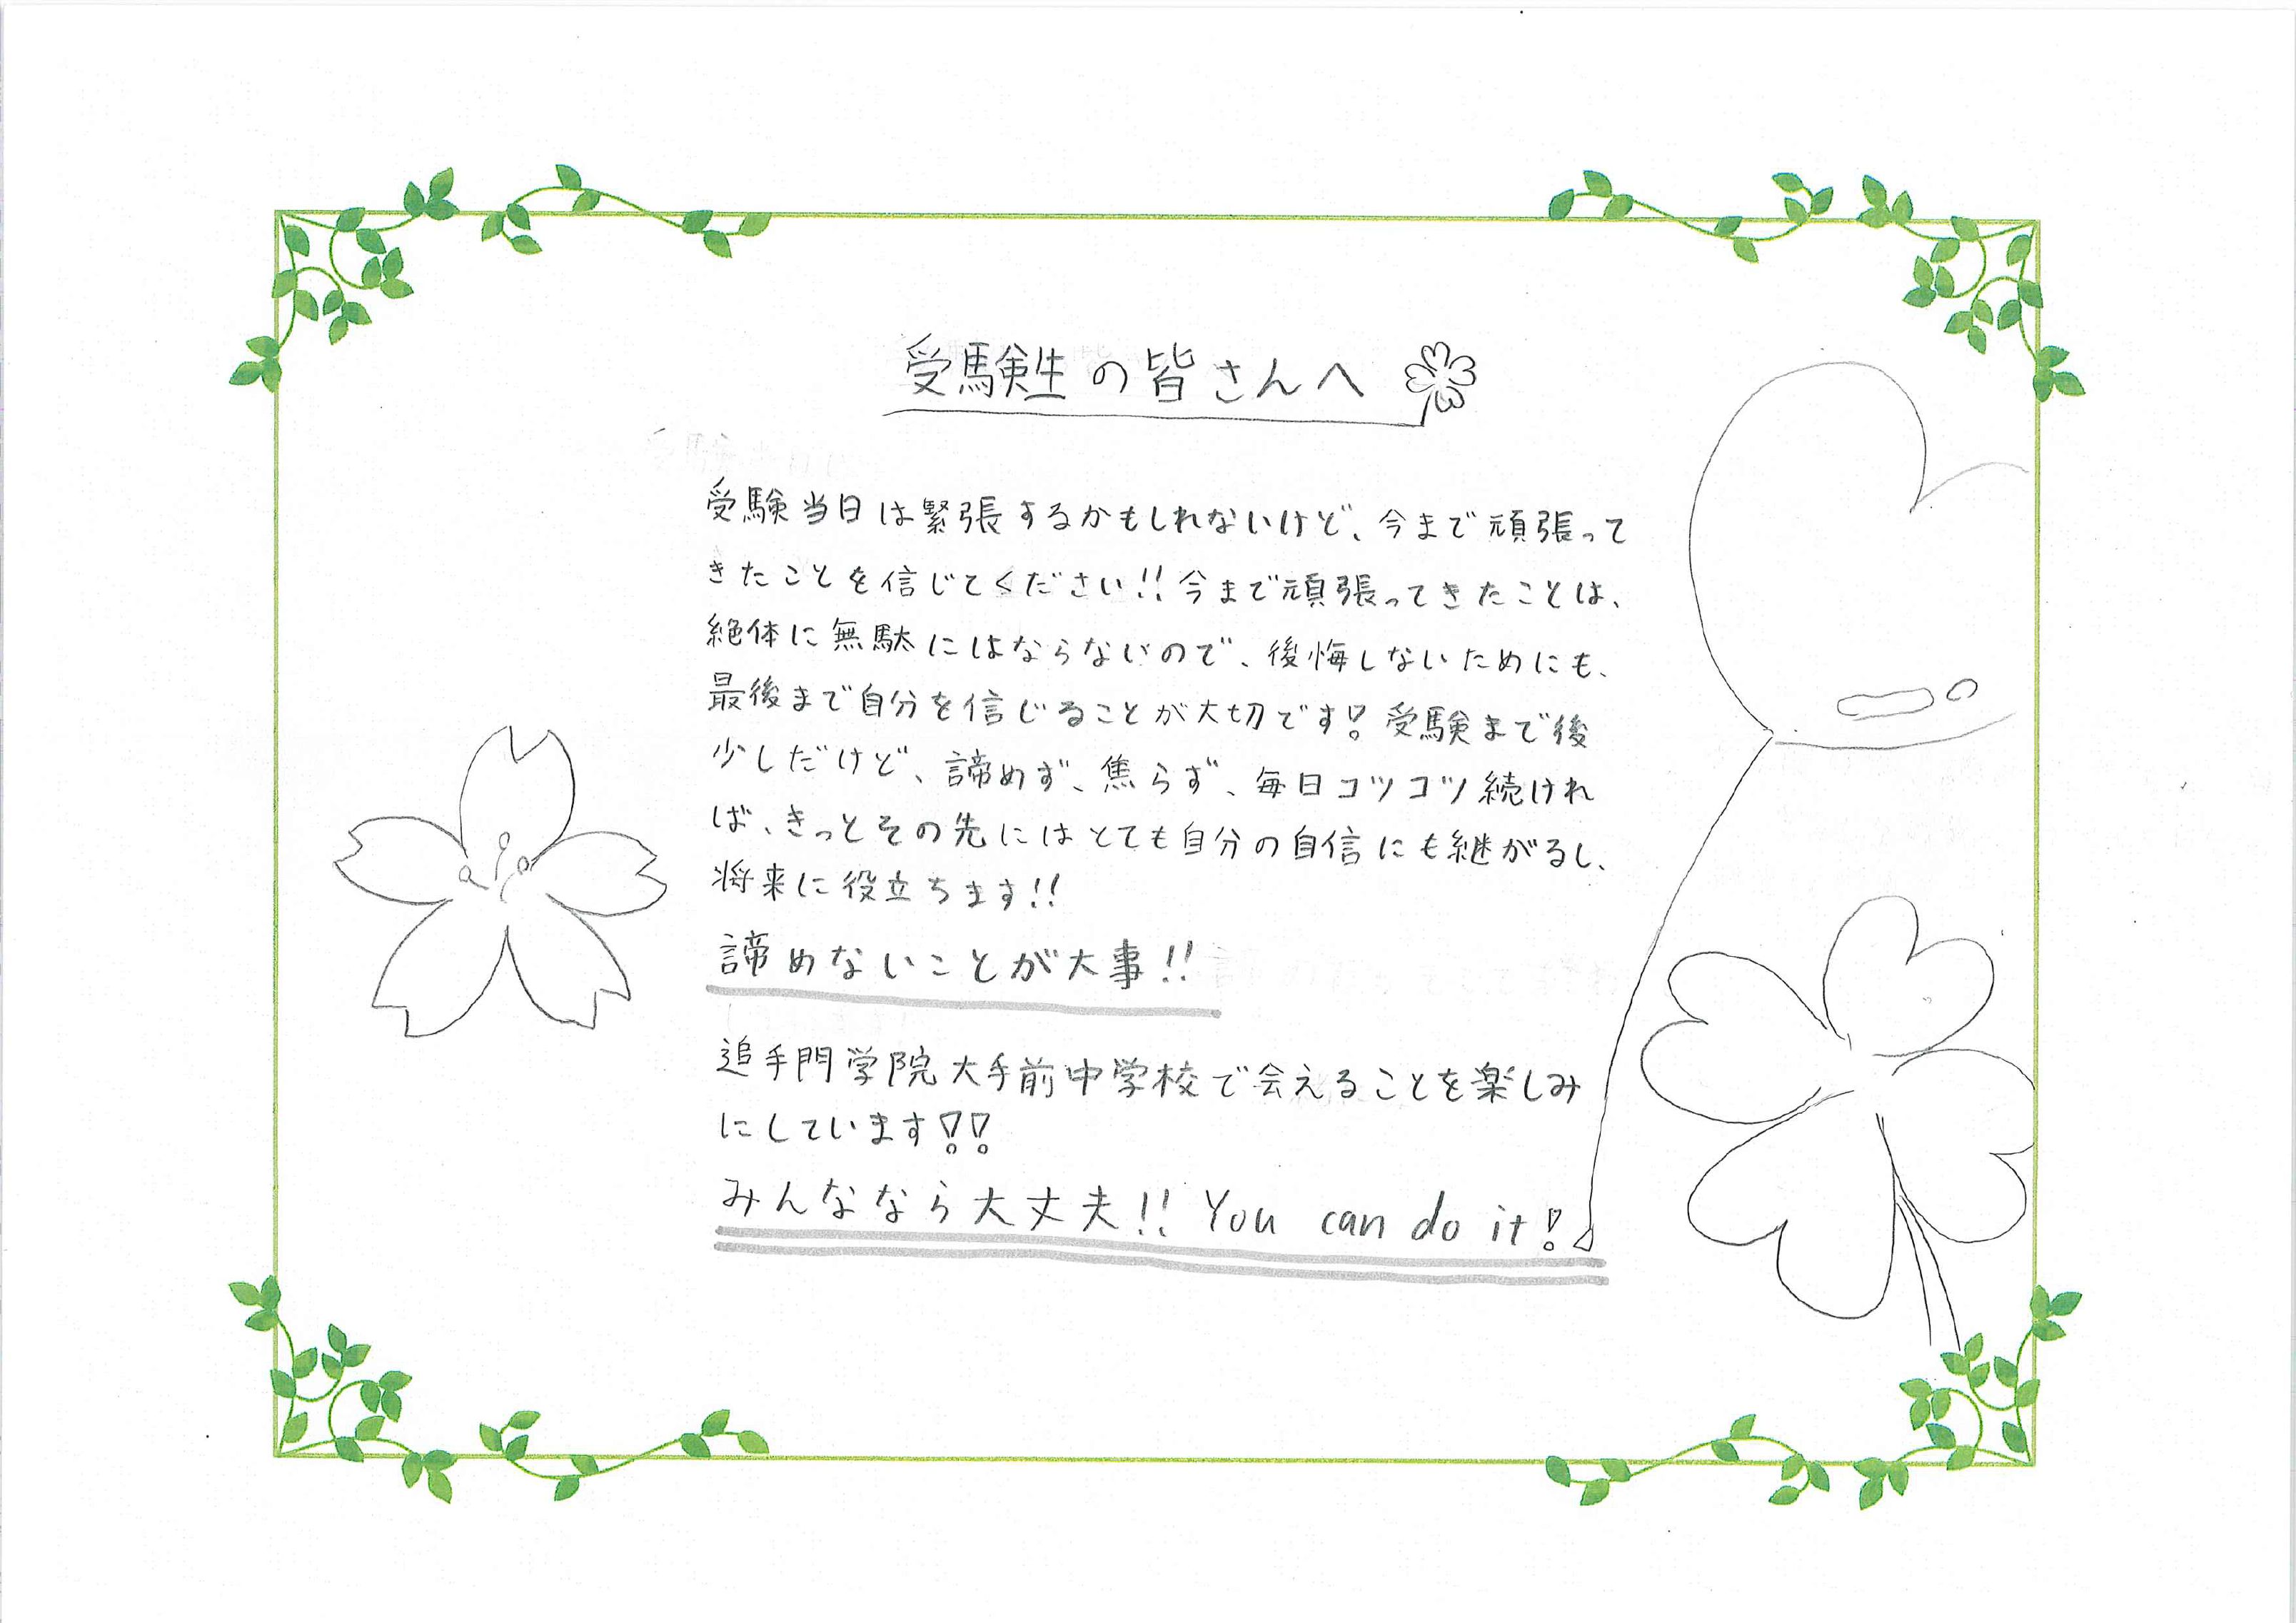 受験生の皆さんへ
受験当日は緊張するかもしれないけど、今まで頑張って
きたことを信じてください!!今まで頑張ってきたことは、
絶体に無駄にはならないので、後悔しないためにも、
最後まで自分を信じることが大切です!受験まで後
少しだけど、諦めず、焦らず、毎日コツコツ続けれ
ば、きっとその先にはとても自分の自信にも継がるし、
将来に役立ちます!!
諦めないことが大事!!
追手門学院大手前中学校で会えることを楽しみ
にしています!!
みんななら大丈夫!! You can do it!